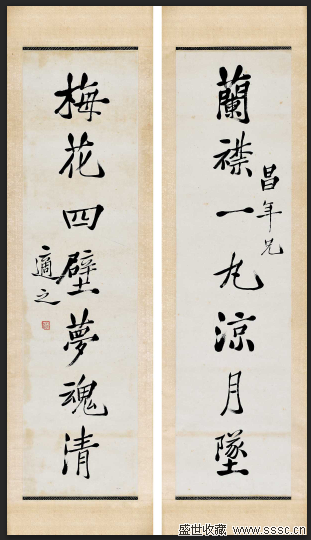 蘭襟一丸涼月墜
昌年兄
梅花四壁夢魂清
適之
盛世收藏 www.sssc.cn